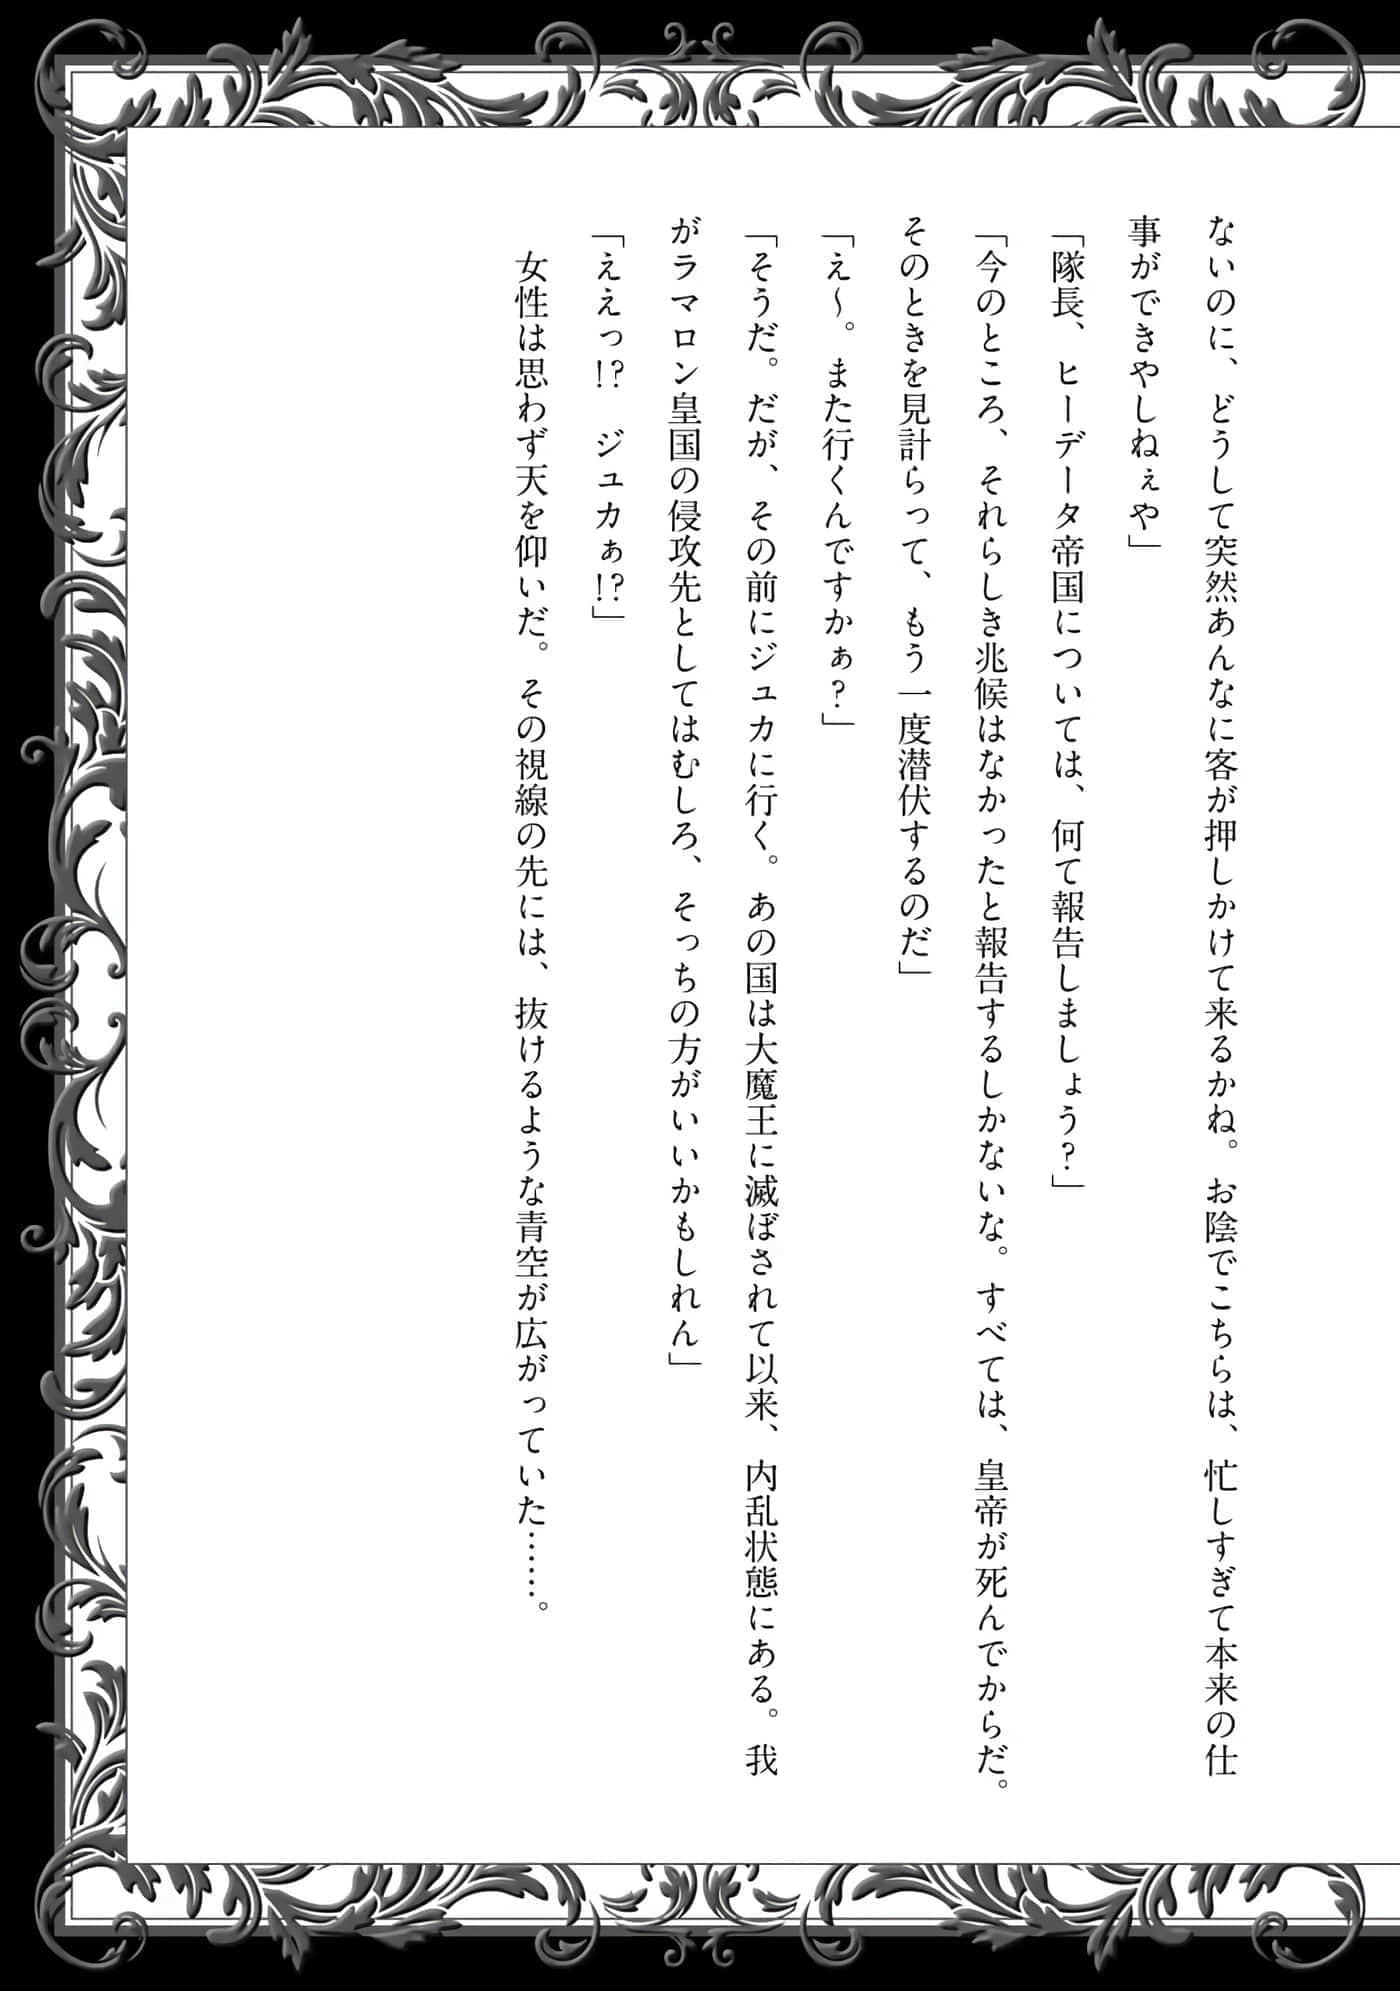 ないのに、どうして突然あんなに客が押しかけて来るかね。お陰でこちらは、忙しすぎて本来の仕
事ができやしねぇや」
「隊長、ヒーデータ帝国については、何て報告しましょう?」
「今のところ、それらしき兆候はなかったと報告するしかないな。すべては、皇帝が死んでからだ。
そのときを見計らって、もう一度潜伏するのだ」
「え～。また行くんですかぁ?」
「そうだ。だが、その前にジュカに行く。あの国は大魔王に滅ぼされて以来、内乱状態にある。我
がラマロン皇国の侵攻先としてはむしろ、そっちの方がいいかもしれん」
「ええっ!?　ジュカぁ!?」
　女性は思わず天を仰いだ。その視線の先には、抜けるような青空が広がっていた……。